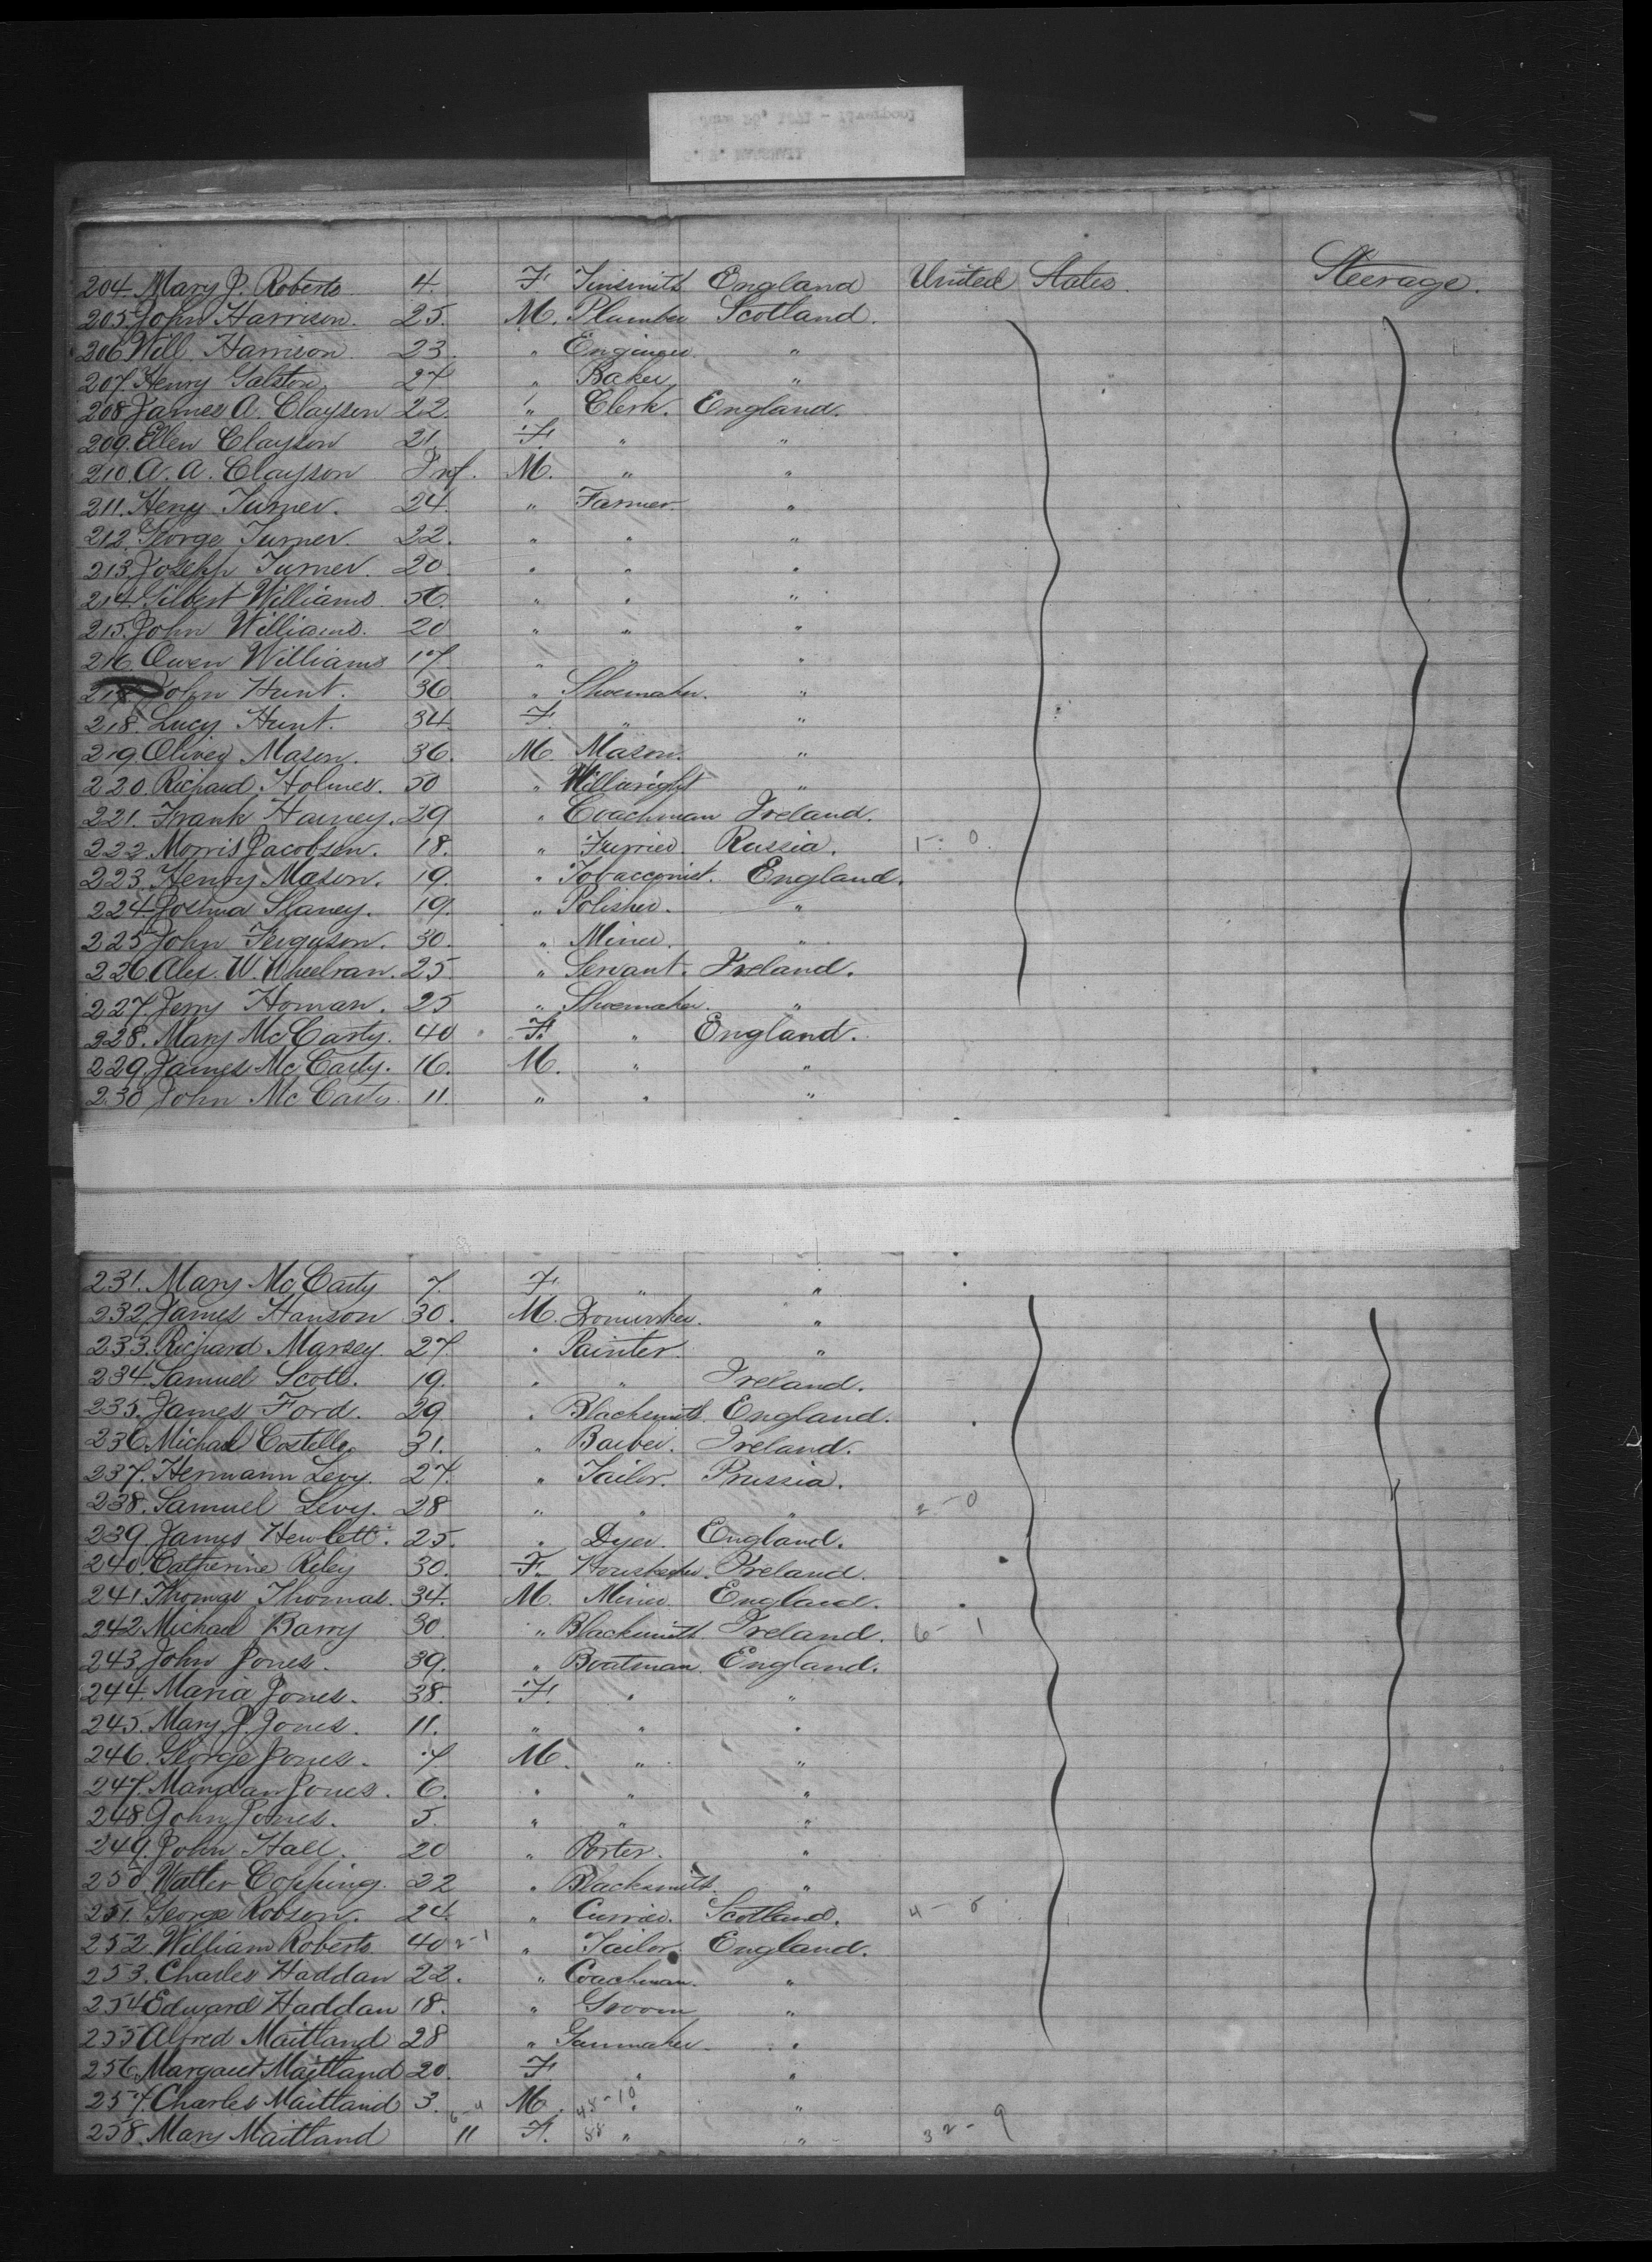 204. Mary J. Roberts 4. F Tinsmith England United States. Steerage.
205. John Harrison. 25. M. Plumber Scotland.
206 Will Harrison 23. " Engineer. "
207. Henry Galston 27 " Baker "
208 James A. Clayson 22 " Clerk. England.
209. Ellen Clayson 21. F. " "
210. A. A. Clayson Inf. M. " "
211. Heny Turner. 24. " Farmer. "
212. George Turner. 22. " " "
213. Joseph Turner. 20 " " "
214. Gilbert Williams. 56. " " "
215. John Williams. 20 " " "
216 Owen Williams 17 " " "
217 John Hunt. 36 " Shoemaker. "
218. Lucy Hunt. 34. F. " "
219 Oliver Mason. 36. M. Mason. "
220. Richard Holmes. 50 " Millwright "
221. Frank Harney. 29 " Coachman Ireland.
222. Morris Jacobsen. 18. " Furrier. Russia. 1- 0.
223. Henry Mason. 19. " Tobacconist. England.
224 Joshua Slaney. 19. " Polisher. "
225 John Ferguson. 30. " Miner. "
226 Alex. W. Wheelran. 25. " Servant. Ireland.
227. Jerry Homan. 25 " Shoemaker. "
228. Mary McCarty. 40 F. " England.
229. James McCarty. 16. M. " "
230 John McCarty. 11. " " "
231. Mary McCarty 7. F. " "
232 James Hanson 30. M. "
233. Richard Marsey. 27 " Painter. "
234. Samuel Scott. 19. " " Ireland.
235. James Ford. 29 " Blacksmith England.
236 Michael Costello 31. " Barber. Ireland.
237. Hermann Levy. 27. " Tailor. Prussia.
238. Samuel Levy. 28 " " " 2-0
239. James Hewlett. 25. " Dyer. England.
240. Catherine Riley 30. F. Housekeeper. Ireland.
241. Thomas Thomas. 34. M. Miner England.
242 Michael Barry 30. " Blacksmith. Ireland. 6- 1
243 John Jones. 39. " Boatman. England.
244. Maria Jones. 38. F. " "
245. Mary J. Jones. 11. " " "
246. George Jones. 7 M. " "
247. Mandan Jones. 6. " " "
248 John Jones. 5. " " "
249. John Hall. 20 " Porter. "
250 Walter Copping. 32 " Blacksmith "
251. George Robson. 24. " Currier. Scotland. 4-
252. William Roberts 40 2-1 " Tailor. England.
253. Charles Haddan 22. " Coachman. "
254 Edward Haddan 18. " Groom "
255 Alfred Maitland 28 " Gunmaker. "
256. Margaret Maitland 20. F. " "
257. Charles Maitland 3. M. 48-10 " "
258. Mary Maitland 11 F. 58 " " 32-9